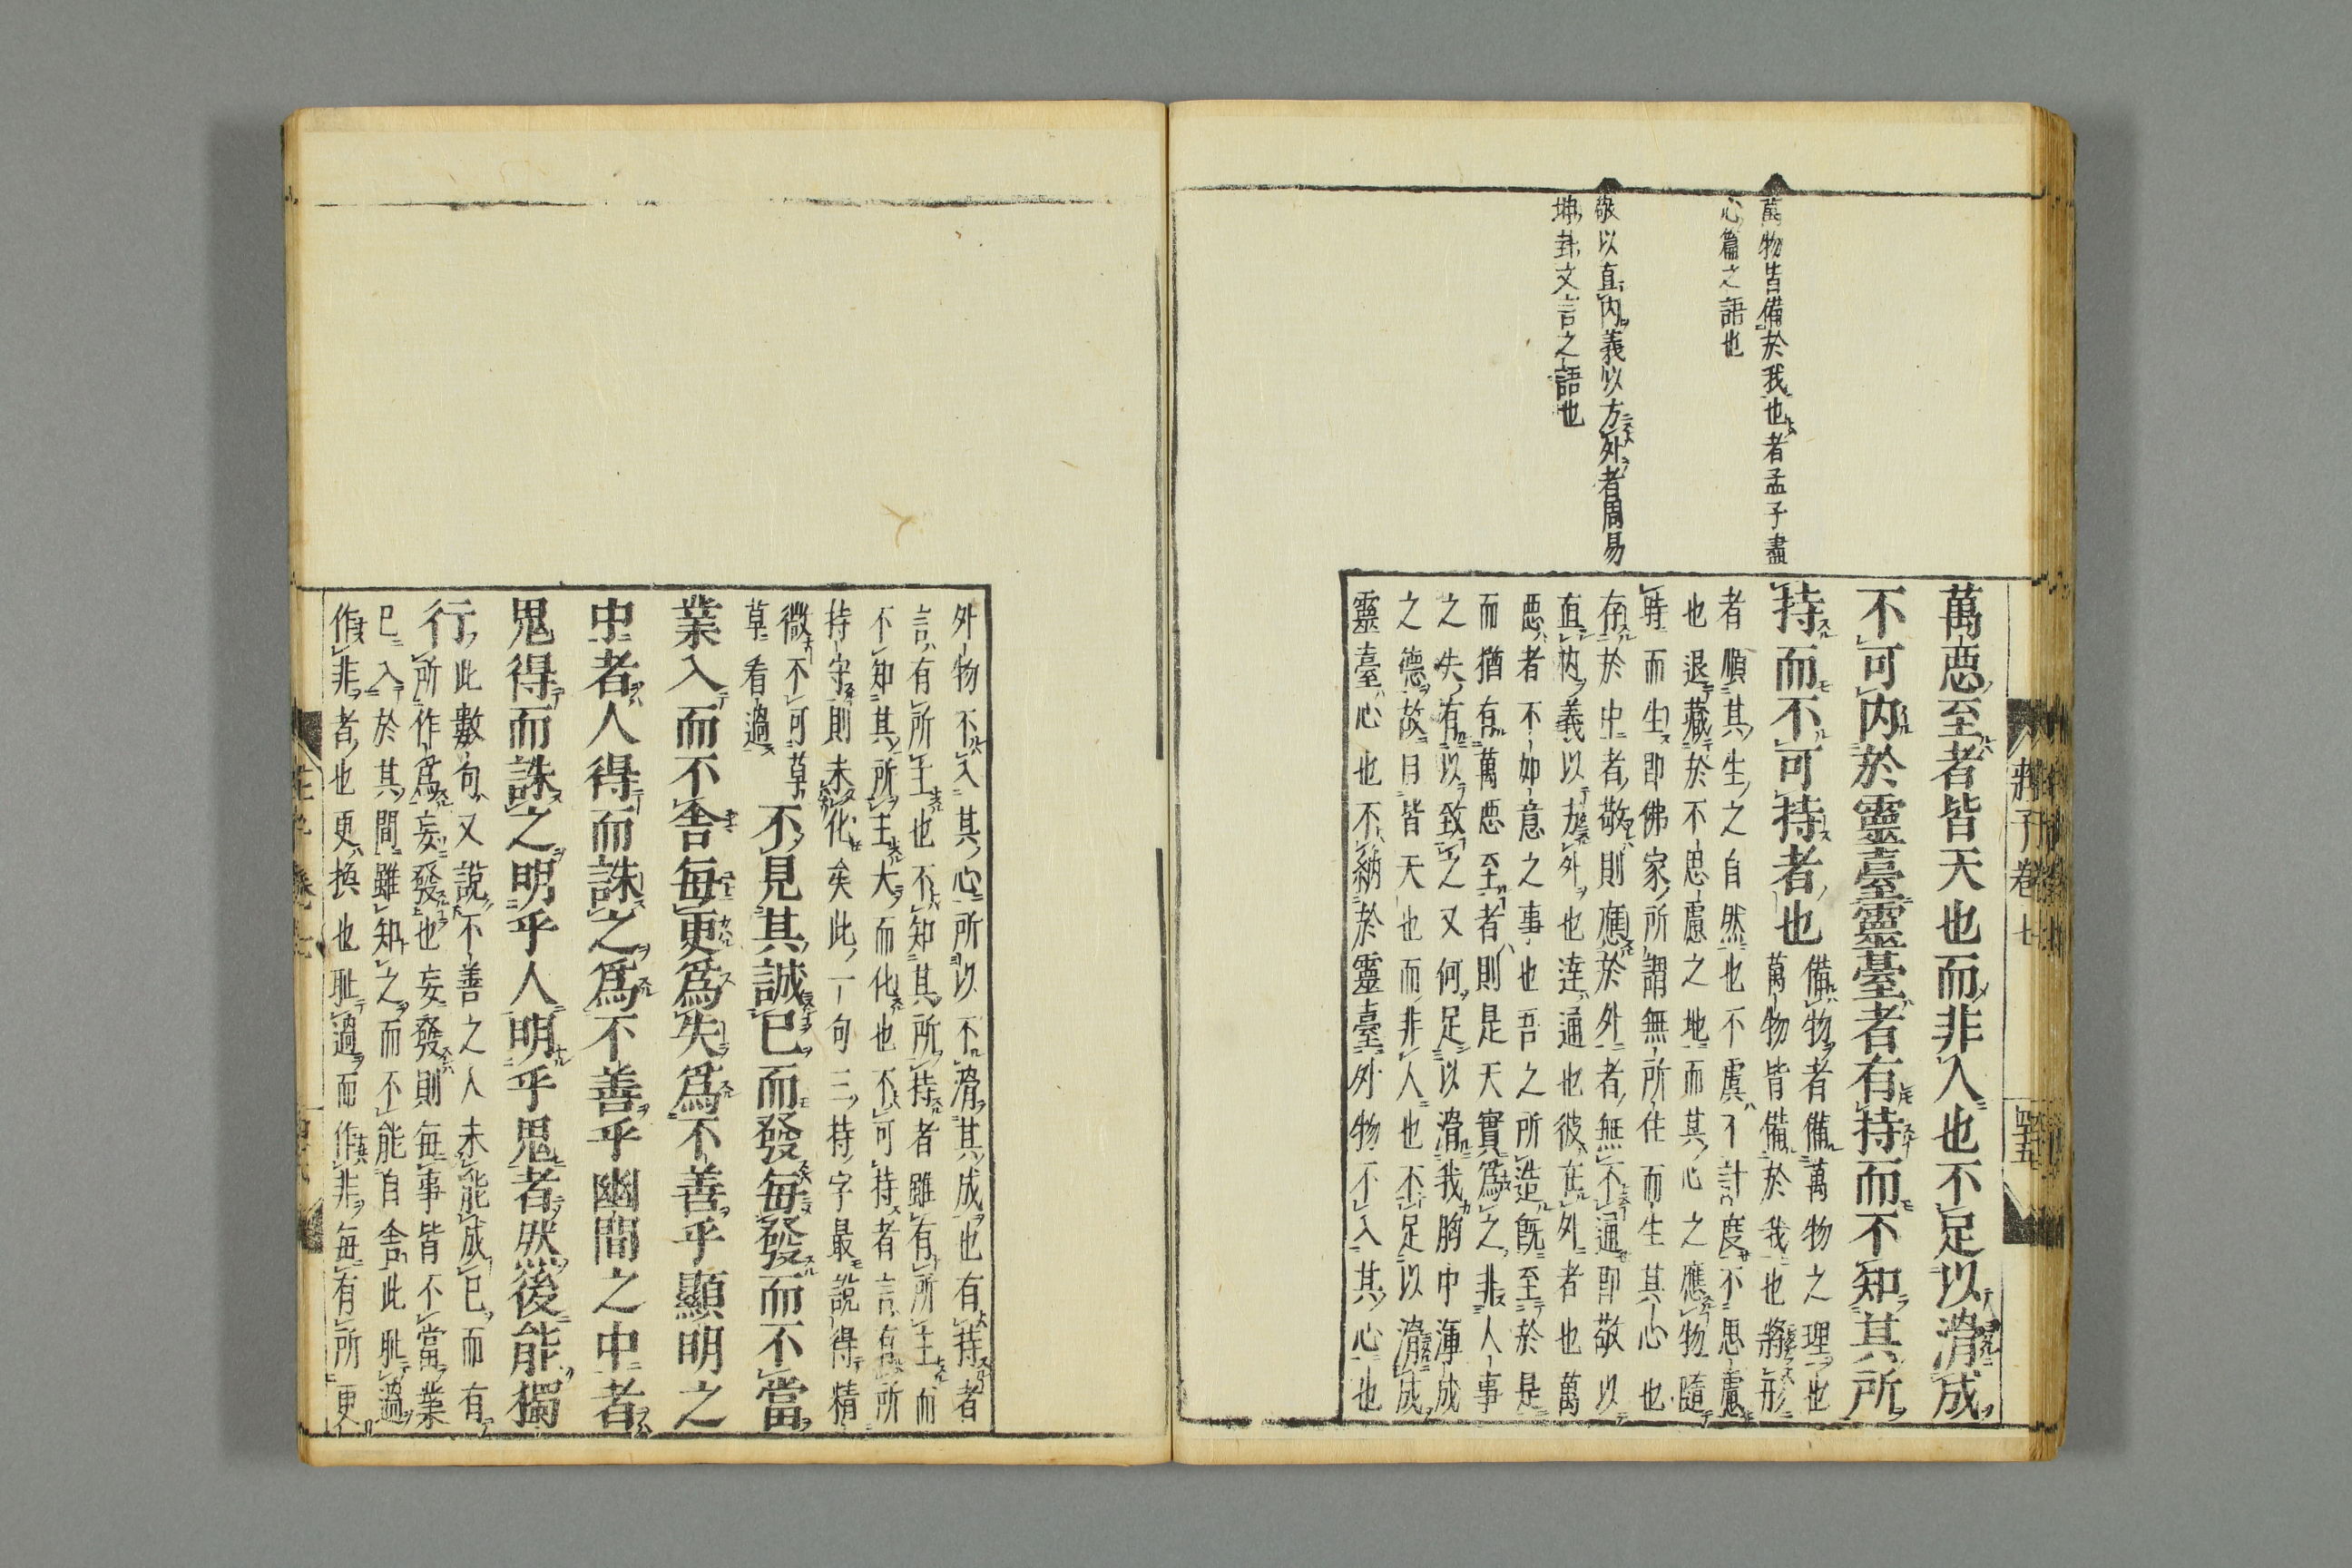 萬物皆備於我也者孟子盡
心篇之語也
敬以直内義以方外者周易
坤卦文言之語也
萬惡至者皆天也而非人也不足以滑成
不可内於靈臺靈臺者有持而不知其所
持而不可持者也
備物者備萬物之理也
萬物皆備於我也將形
者順其生之自然也不虞不計度不思慮
也退藏於不思慮之地而其心之應物隨
時而生即佛家所謂無所住而生其心也
存於中者敬則應於外者無不通即敬以
直内義以方外也達通也彼在外者也萬
惡者不如意之事也吾之所造旣至於是
而猶有萬惡至者則是天實爲之非人事
之失有以致之又何足以滑我胸中渾成
之德故曰皆天也而非人也不足以滑成
靈臺心也不納於靈臺外物不入其心也
莊子卷七
四十五
外物不入其心所以不滑其成也有持者
言有所主也不知其所持者雖有所主而
不知其所主大而化也不可持者言有所
持守則未化矣此一句三持字最說得精
微不可草
草看過
不見其誠已而發每發而不當
業入而不舍每更爲失爲不善乎顯明之
中者人得而誅之爲不善乎幽間之中者
鬼得而誅之明乎人明乎鬼者然後能獨
行
此數句又說不善之人未能成已而有
所作爲妄發也妄發則每事皆不當業
已入於其間雖知之而不能自舍此耻過
作非者也更換也耻過而作非每有所更